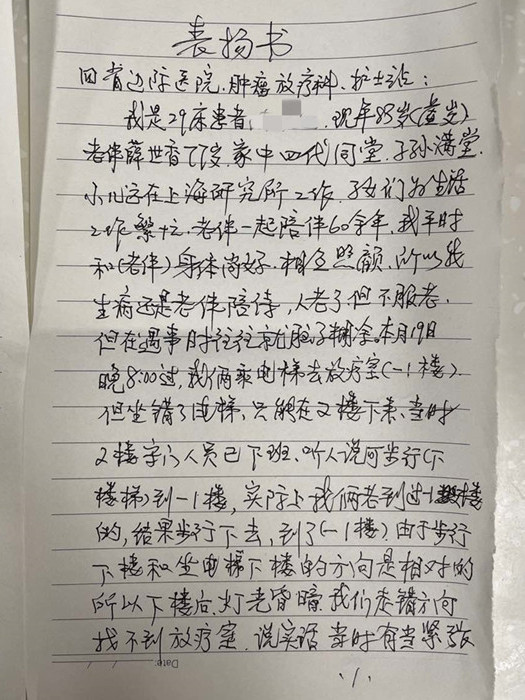 表扬书
四省边际医院.肿瘤放疗科.护士站:
我是29床患者 . 现年83岁(虚岁)
老伴薛世香77岁.家中四代同堂.子孙满堂.
小儿子在上海研究所工作.孩子们为生活
工作繁忙.老伴一起陪伴60余年.我平时
和(老伴)身体尚好.相互照顾.所以我
生病还是老伴陪待.人老了但不服老.
但在遇事时往往就脑子糊余.本月19日
晚8:00过,我俩乘电梯去放疗室(-1楼).
但坐错了电梯,只能在2楼下来.当时
2楼字门人员已下班.听人说可步行(下
楼梯)到-1楼,实际上我俩老到过-1楼
的,结果步行下去,到了(-1楼).由于步行
下楼和坐电梯下楼的方向是相对的
所以下楼后.灯光昏暗.我们走错方向
找不到放疗室.说实话 当时有当紧张
Date: / /
.1.